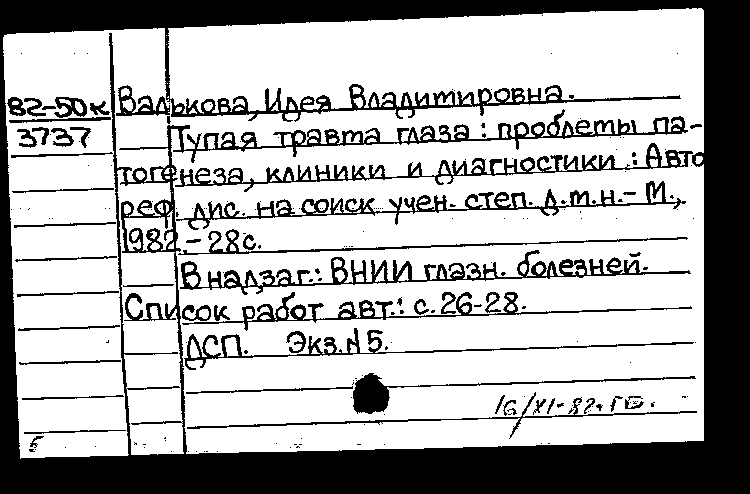 82-50к Валькова, Идея Владимировна.
3737 Тупая травма глаза: проблемы па-
тогенеза, клиники и диагностики.: Авто
реф. дис. на соиск учен. степ. д.м.н.- М.,
1982.- 28с.
В надзаг.: ВНИИ глазн. болезней.
Список работ авт.: с.26-28.
ДСП. Экз.N5.
16/XI-82.
5